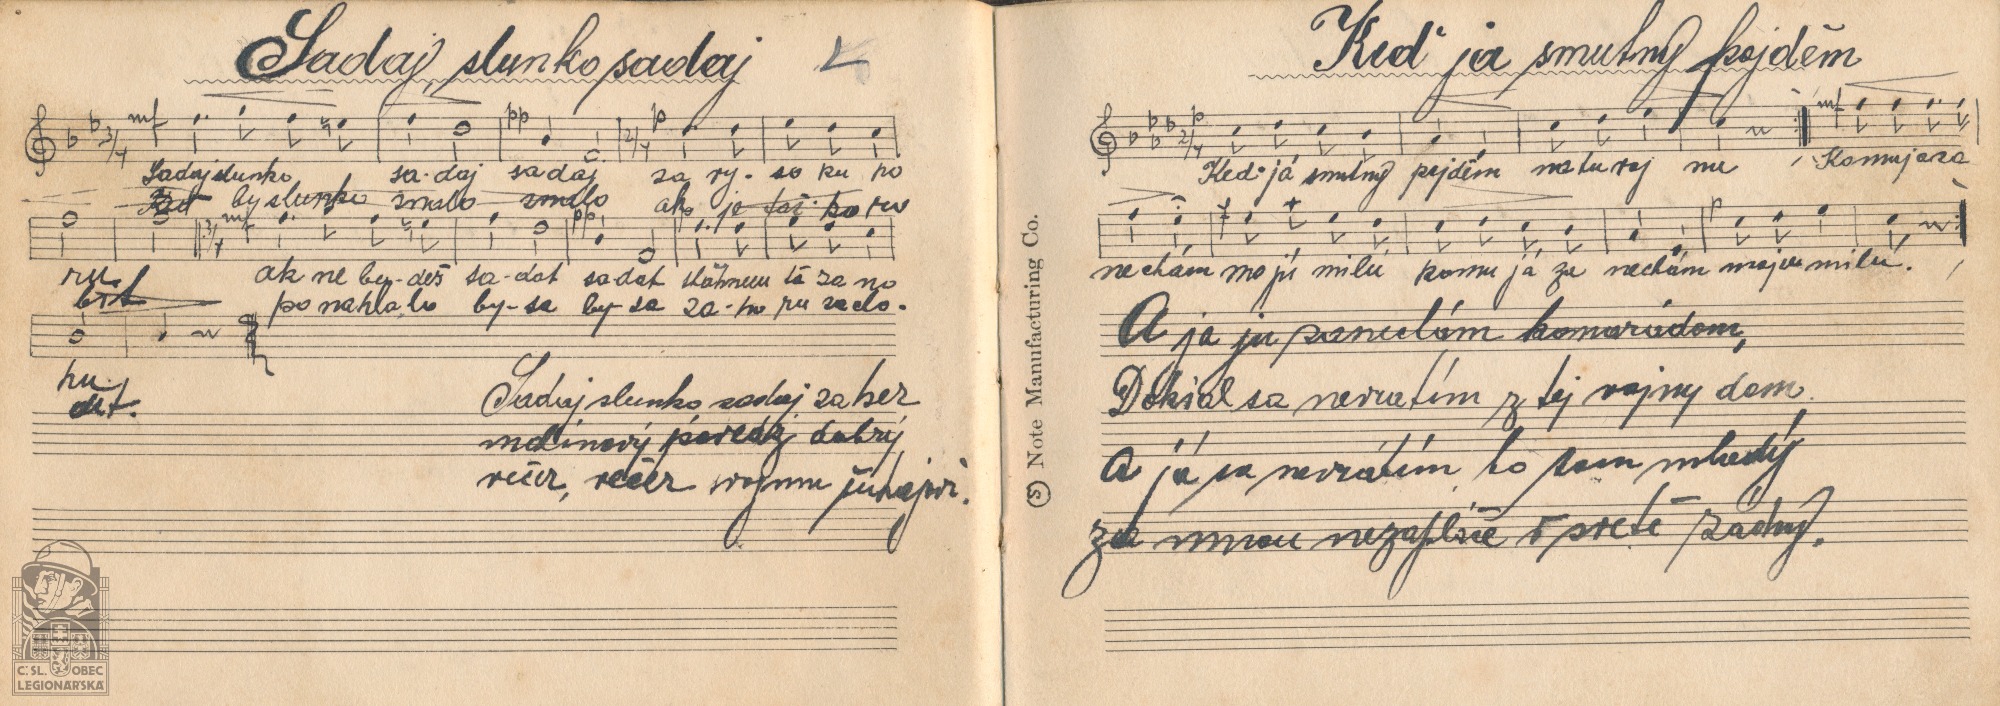 Sadaj, slunko sadaj
mf pp p
Sadaj slunko sa-daj sadaj za vy-so ku ho
by slunko znalo znalo ako je ťaž-ko ro
mf pp
ru. ak ne bu-deš sa-dat sadat stáhneu ťa za no
bit ponahlalo by-sa by sa za-ho ru zado-
hu.
det.
Sadaj slunko sadaj za her
melínový povedz dobrý
večer, večer mojmu šuhajovi.
Keď ja smutný pojděm
p mf
Keď já smutný pojděm na tu voj nu Komu ja za
p
nechám moju milú komu já za nechám moju milú.
A já ju zanechám kamarádom,
Dokiál sa nevrátím z tej vojny dom.
A já sa nevrátím, to som mladý
za mnou nezapláče v světě žádný.
Ⓢ Note Manufacturing Co.
Č.SL. OBEC
LEGIONÁŘSKÁ